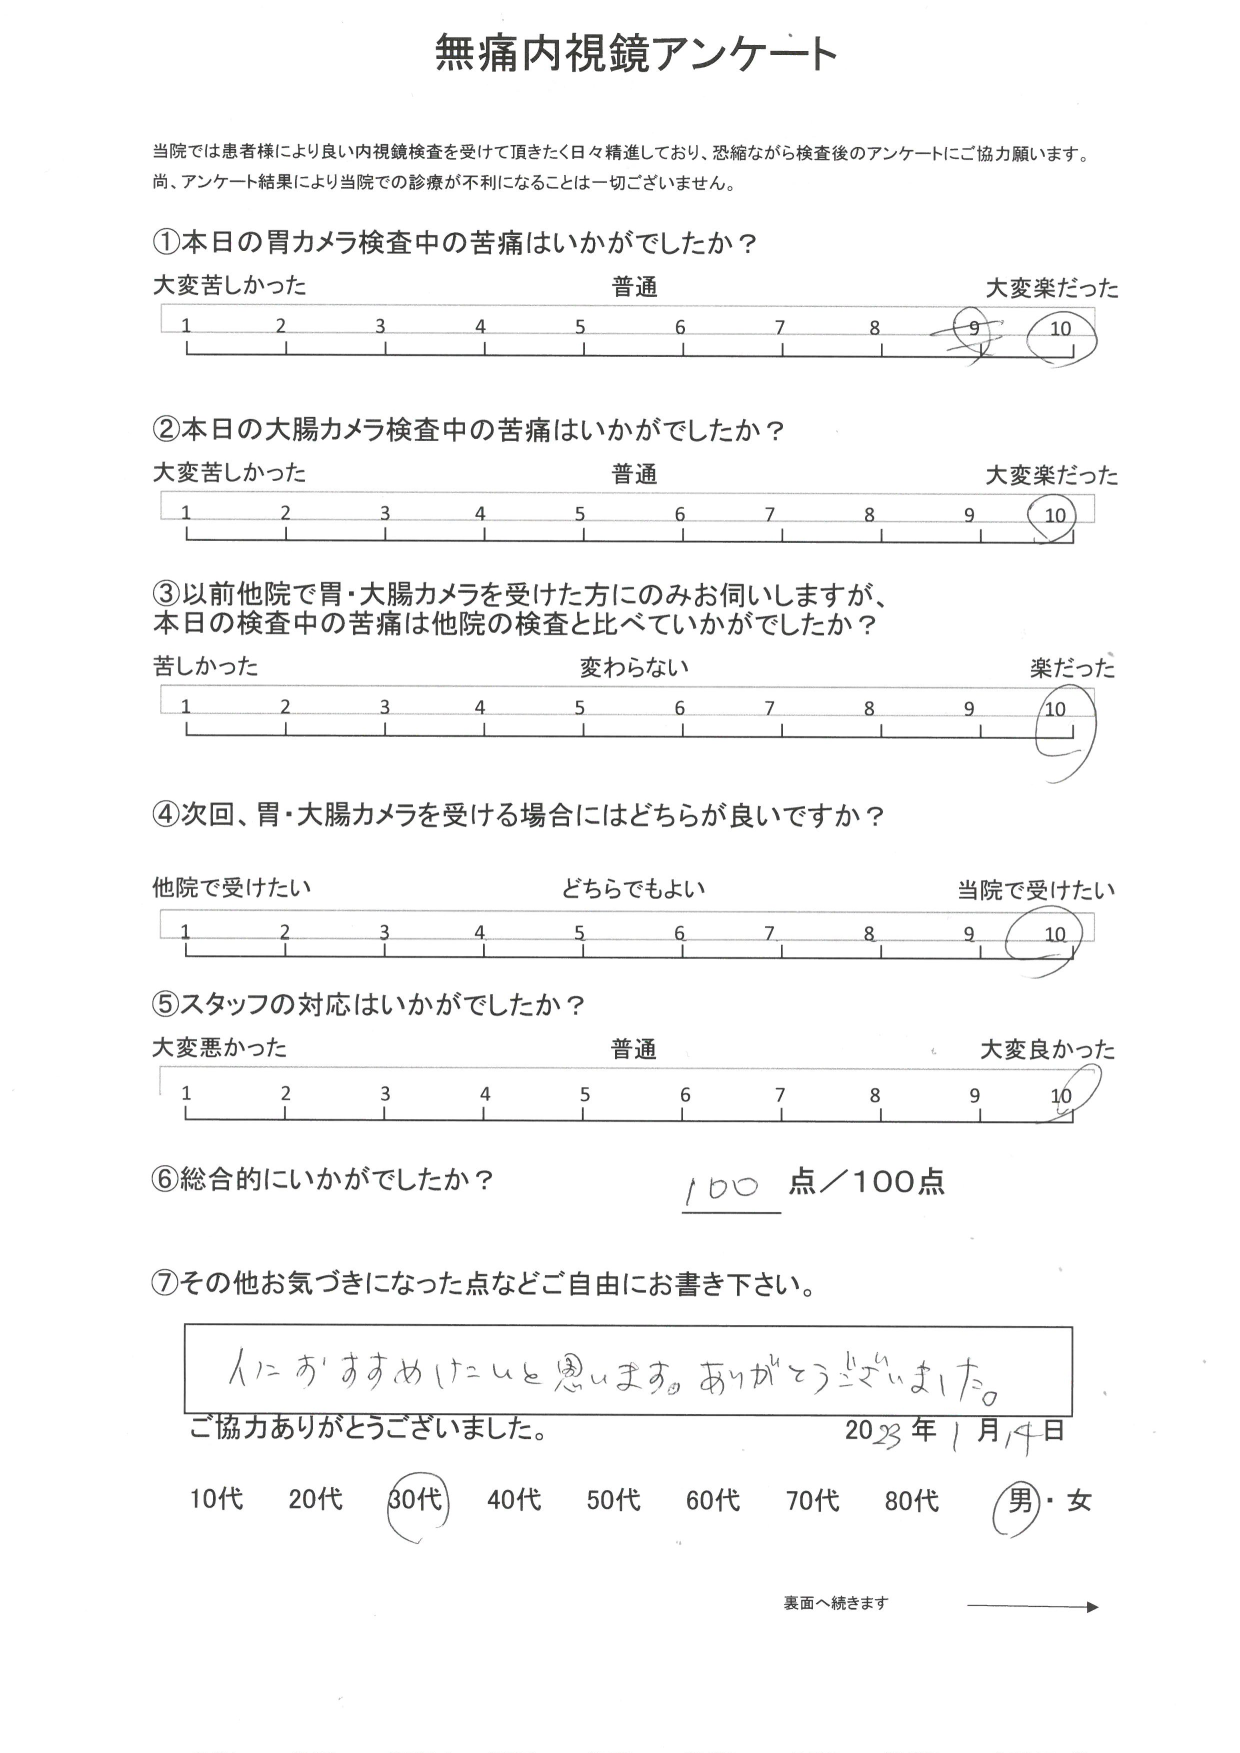 無痛内視鏡アンケート
当院では患者様により良い内視鏡検査を受けて頂きたく日々精進しており、恐縮ながら検査後のアンケートにご協力願います。
尚、アンケート結果により当院での診療が不利になることは一切ございません。
①本日の胃カメラ検査中の苦痛はいかがでしたか？
大変苦しかった 普通 大変楽だった
1 2 3 4 5 6 7 8 9 10
②本日の大腸カメラ検査中の苦痛はいかがでしたか？
大変苦しかった 普通 大変楽だった
1 2 3 4 5 6 7 8 9 10
③以前他院で胃・大腸カメラを受けた方にのみお伺いしますが、
本日の検査中の苦痛は他院の検査と比べていかがでしたか？
苦しかった 変わらない 楽だった
1 2 3 4 5 6 7 8 9 10
④次回、胃・大腸カメラを受ける場合にはどちらが良いですか？
他院で受けたい どちらでもよい 当院で受けたい
1 2 3 4 5 6 7 8 9 10
⑤スタッフの対応はいかがでしたか？
大変悪かった 普通 大変良かった
1 2 3 4 5 6 7 8 9 10
⑥総合的にいかがでしたか？ 100 点／100点
⑦その他お気づきになった点などご自由にお書き下さい。
人におすすめしたいと思います。ありがとうございました。
ご協力ありがとうございました。 2023年 1月14日
10代 20代 30代 40代 50代 60代 70代 80代 男・女
裏面へ続きます